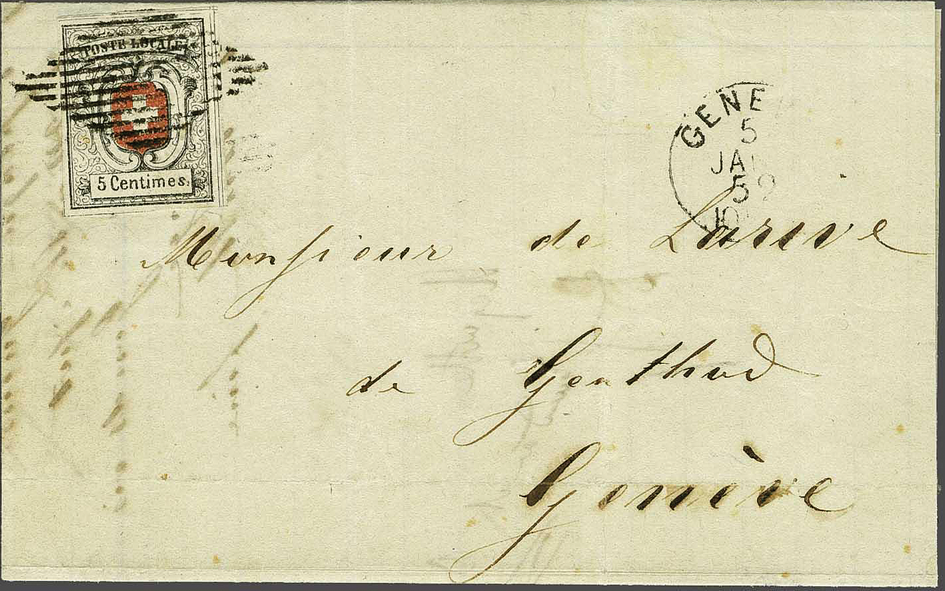 POSTE LOCALE
5 Centimes.
GENE
5
JAN
59
Monsieur de Larive
de Genthod
Genève